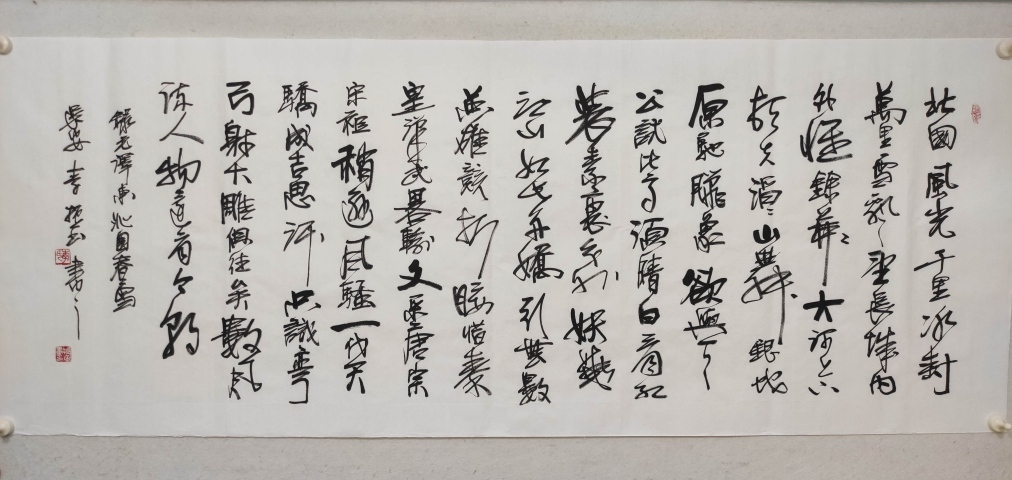 北國風光千里冰封
萬里雪飄〻望長城內
外惟餘莽〻大河上下
頓失滔〻山舞銀蛇
原馳臘象欲與天
公試比高須晴日看紅
裝素裹分外妖嬈
江山如此多嬌引無數
英雄競折腰惜秦
皇漢武畧輸文采唐宗
宋祖稍遜風騷一代天
驕成吉思汗只識彎
弓射大雕俱往矣數風
流人物還看今朝
錄毛澤東沁園春雪
李振書